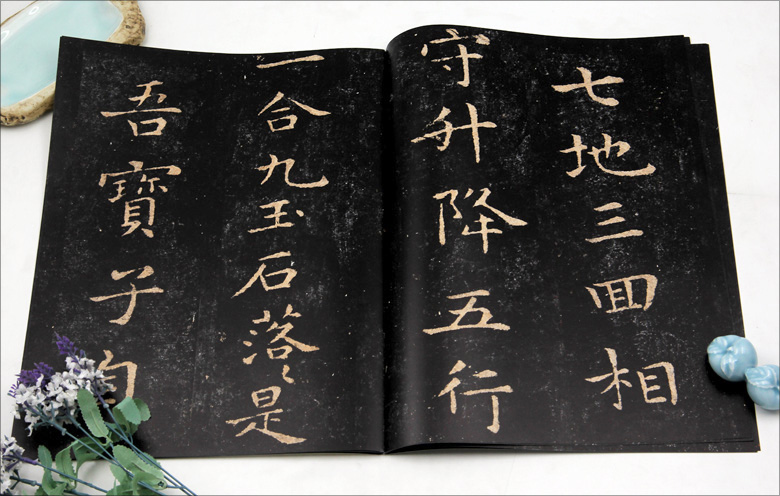 七地三囬相
守升降五行
一合九玉石落〻是
吾寶子自